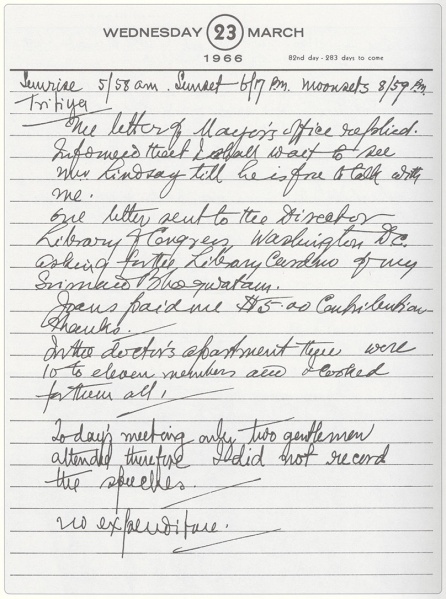 WEDNESDAY 23 MARCH
1966
82nd day - 283 days to come
Sunrise 5/58 am. Sunset 6/17 Pm. Moonsets 8/59 Pm.
Tritiya
One letter of Mayor's office replied.
Informed that I shall wait to see
Mr. Lindsay till he is free to talk with
me.
One letter sent to the Director
Library of Congress Washington D.C.
asking for the Library Card no of my
Srimad Bhagwatam.
paid me $5.00 Contribution
Thanks.
In the doctor's apartment there were
10 to eleven members and I cooked
for them all.
Today's meeting only two gentlemen
attended therefore I did not record
the speeches.
no expenditure.